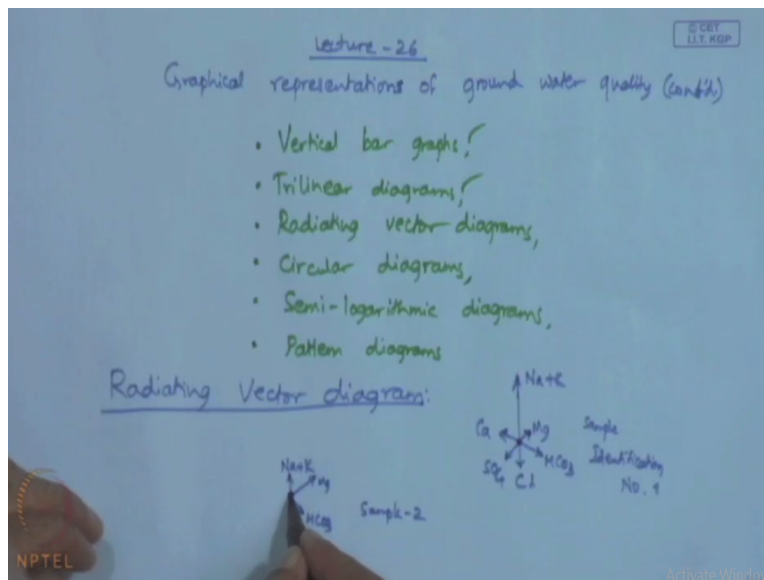 © CET
I.I.T. KGP
Lecture - 26
Graphical representations of ground water quality (contd.)
• Vertical bar graphs,
• Trilinear diagrams,
• Radiating vector diagrams,
• Circular diagrams,
• Semi-logarithmic diagrams,
• Pattern diagrams
Radiating Vector diagram:
Na+K
Ca
Mg
SO4
Cl
HCO3
Sample
Identification
No. 1
Na+K
Mg
HCO3
Sample-2
NPTEL
Activate Windo